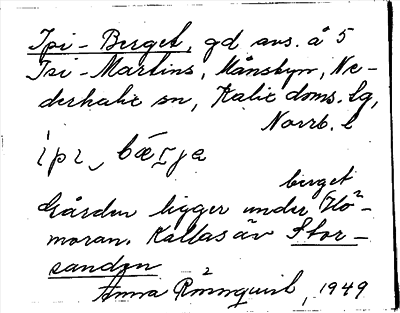 Ipi-Berget, gd avs. å 5
Isi-Martins, Månsbyn, Ne-
derkalix sn, Kalix doms. lg,
Norrb. l
berget
Gården ligger under Hö-
moran. Kallas äv Stor-
sanden
Anna Rönnquist, 1949